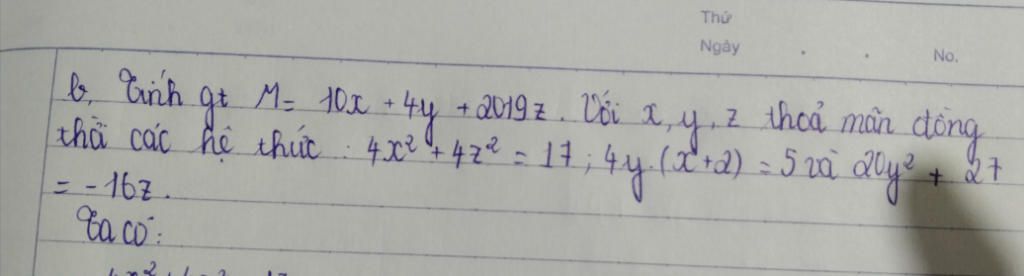 Thứ
Ngày . . No.
b, Tính gt M = 10x + 4y + 2019z. Với x, y, z thoả mãn đồng
thời các hệ thức : 4x² + 4z² = 17 ; 4y.(x+2) = 5 và 20y² + 27
= -16z.
Ta có :